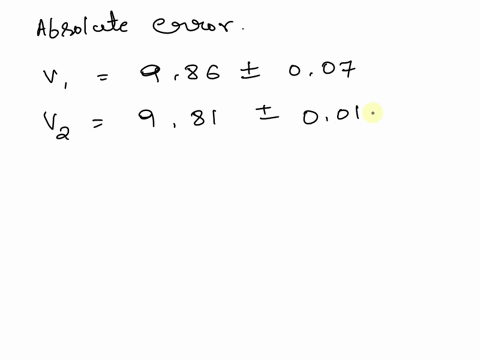 Absolute error.
V₁ = 9.86 ± 0.07
V₂ = 9.81 ± 0.01